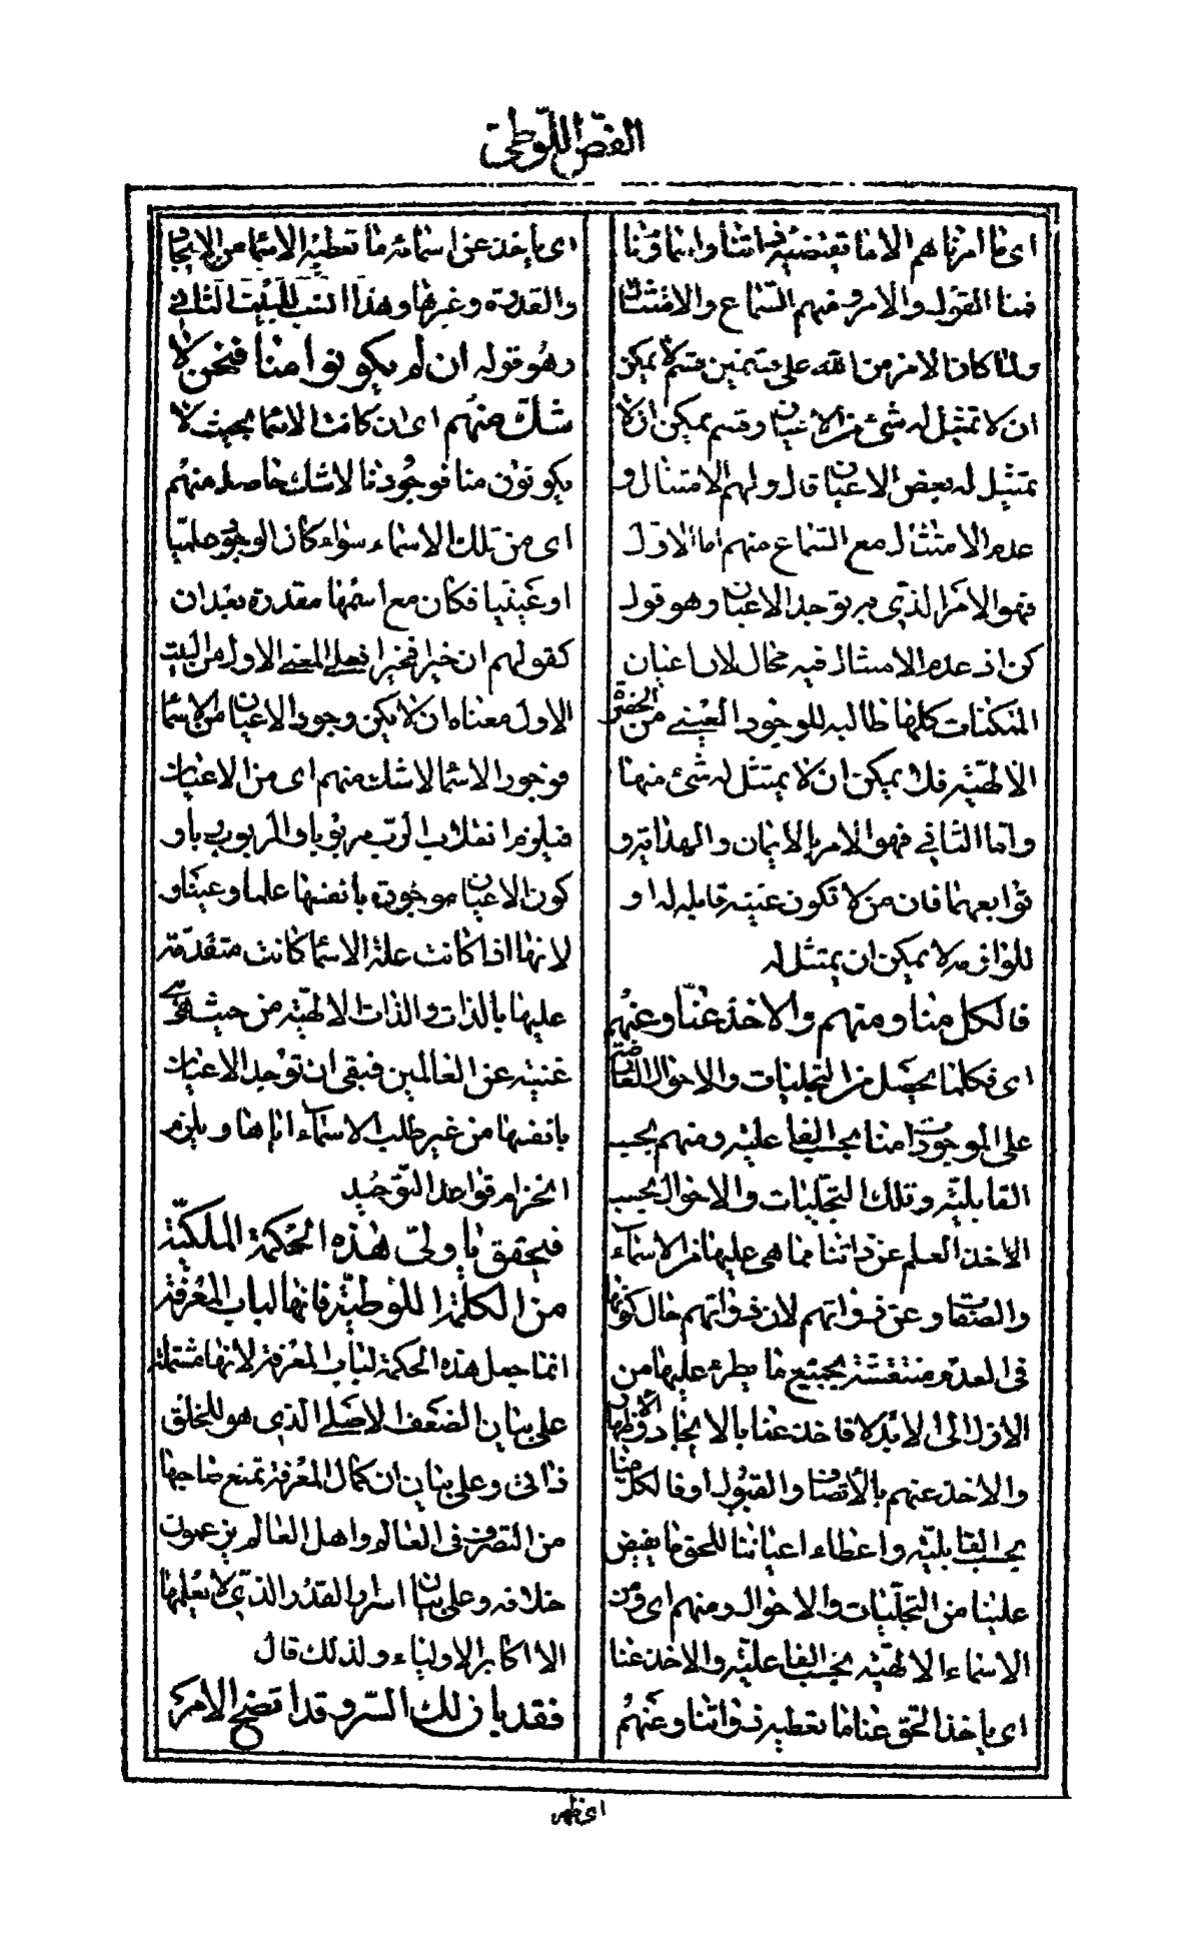 الفص اللوطى
اى ما امرناهم الا ما تقتضيه ذاتنا وايضا قلنا
فمنا القول والامر ومنهم السماع والامتثال
ولما كان الامر من الله على قسمين قسم لا يمكن
ان لا تمتثل له شئ من الاعيان وقسم يمكن ان لا
يمتثل له بعض الاعيان قال ولهم الامتثال و
عدم الامتثال مع السماع منهم اما الاول
فهو الامر الذى به توجد الاعيان وهو قول
كن اذ عدم الامتثال فيه محال لان اعيان
الممكنات كلها طالبه للوجود العينى من الحضرة
الالهية فلا يمكن ان لا يمتثل له شئ منها
واما الثانى فهو الامر بالايمان والهداية و
توابعهما فان من لا تكون عينه قابله له او
للوازمه لا يمكن ان يمتثل له
فالكل منا ومنهم والاخذ عنا وعنهم
اى فكلما يحصل من التجليات والاحوال الفائضة
على الموجودات منا بحسب الفاعلية ومنهم بحسب
القابلية وتلك التجليات والاحوال بحسب
الاخذ العلم عن ذاتنا مما هى عليها من الاسماء
والصفات وعن ذواتهم لان ذواتهم حال كونها
فى العدم منتقشة بجميع ما يطرء عليها من
الازل الى الابد لا فاخذ عنا بالايجاد والاظهار
والاخذ عنهم بالاتصاف والقبول او فالكل منا
بحسب القابلية واعطاء اعياننا للحق ما يفيض
علينا من التجليات والاحوال ومنهم اى ومن
الاسماء الالهية بحسب الفاعلية والاخذ عنا
اى ياخذ الحق عنا ما تعطيه ذواتنا وعنهم
اى ياخذ عن اسمائه ما تعطيه الاسما من الايجاد
والقدرة وغيرها وهذا انسب للبيت الثانى
وهو قوله ان لم يكونوا منا فنحن لا
شك منهم اى ان كانت الاسما بحيث لا
يكونون منا فوجودنا لا شك حاصله منهم
اى من تلك الاسماء سواء كان الوجود علميا
او عينيا فكان مع اسمها مقدرة بعد ان
كقولهم ان خيرا فخيرا فعلى المعنى الاول من البيت
الاول معناه ان لا يكن وجود الاعيان من الاسما
فوجود الاسما لا شك منهم اى من الاعيان
فيلزم انقلاب الرب مربوبا والمربوب ربا و
كون الاعيان موجودة بانفسها علما وعينا و
لانها اذا كانت علة الاسما كانت متقدمة
عليها بالذات والذات الالهية من حيث هى
غنية عن العالمين فبقى ان توجد الاعيان
بانفسها من غير طلب الاسماء اياها ويلزم
انخرام قواعد التوحيد
فتحقق يا ولى هذه الحكمة الملكية
من الكلمة اللوطية فانها لباب المعرفة
انما جعل هذه الحكمة لباب المعرفة لانها مشتملة
على بيان الضعف الاصلى الذى هو للخلق
ذاتى وعلى بيان ان كمال المعرفة تمنع صاحبها
من التصرف فى العالم واهل العالم يزعمون
خلافه وعلى بيان اسرار القدر الذى لا يعلمها
الا اكابر الاولياء ولذلك قال
فقد بان لك السر وقد اتضح الامر
اى ظهر